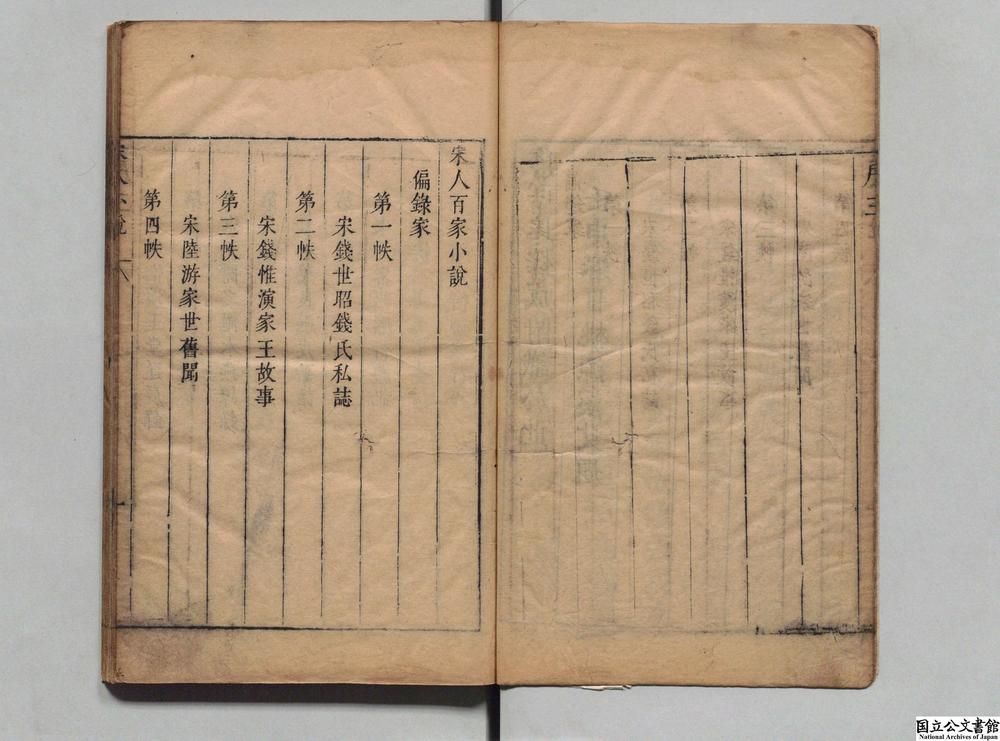 宋人百家小說
偏錄家
第一帙
宋錢世昭錢氏私誌
第二帙
宋錢惟演家王故事
第三帙
宋陸游家世舊聞
第四帙
国立公文書館
National Archives of Japan